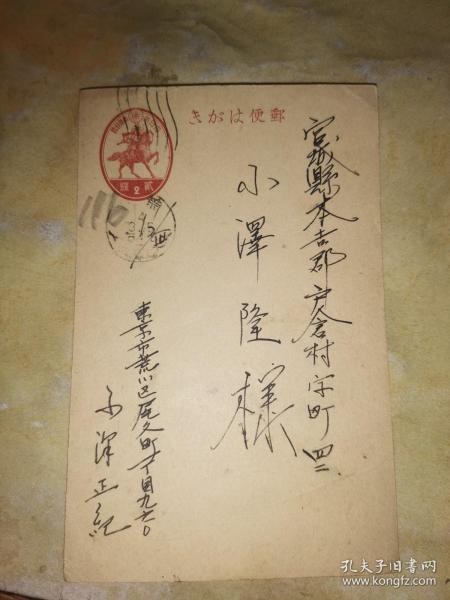 郵便はがき
宮城縣本吉郡戸倉村字町四二
小澤隆様
東京市荒川区尾久町
小澤正紀
貳 2 錢
116
孔夫子旧书网
www.kongfz.com